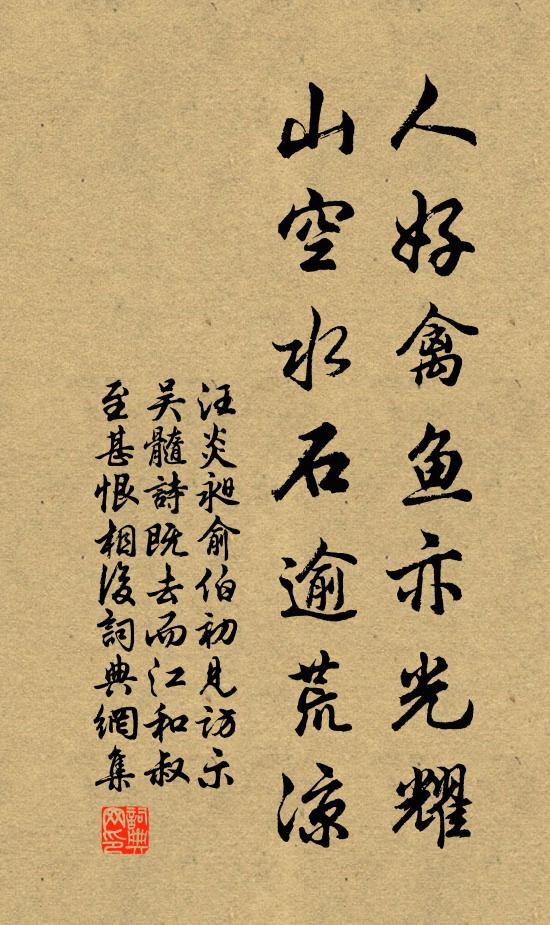 人好禽鱼亦光耀
山空水石逾荒凉
汪炎昶俞伯初见访示
吴髓詩既去而江和叔
至甚恨相後詞典網集
詞典网印